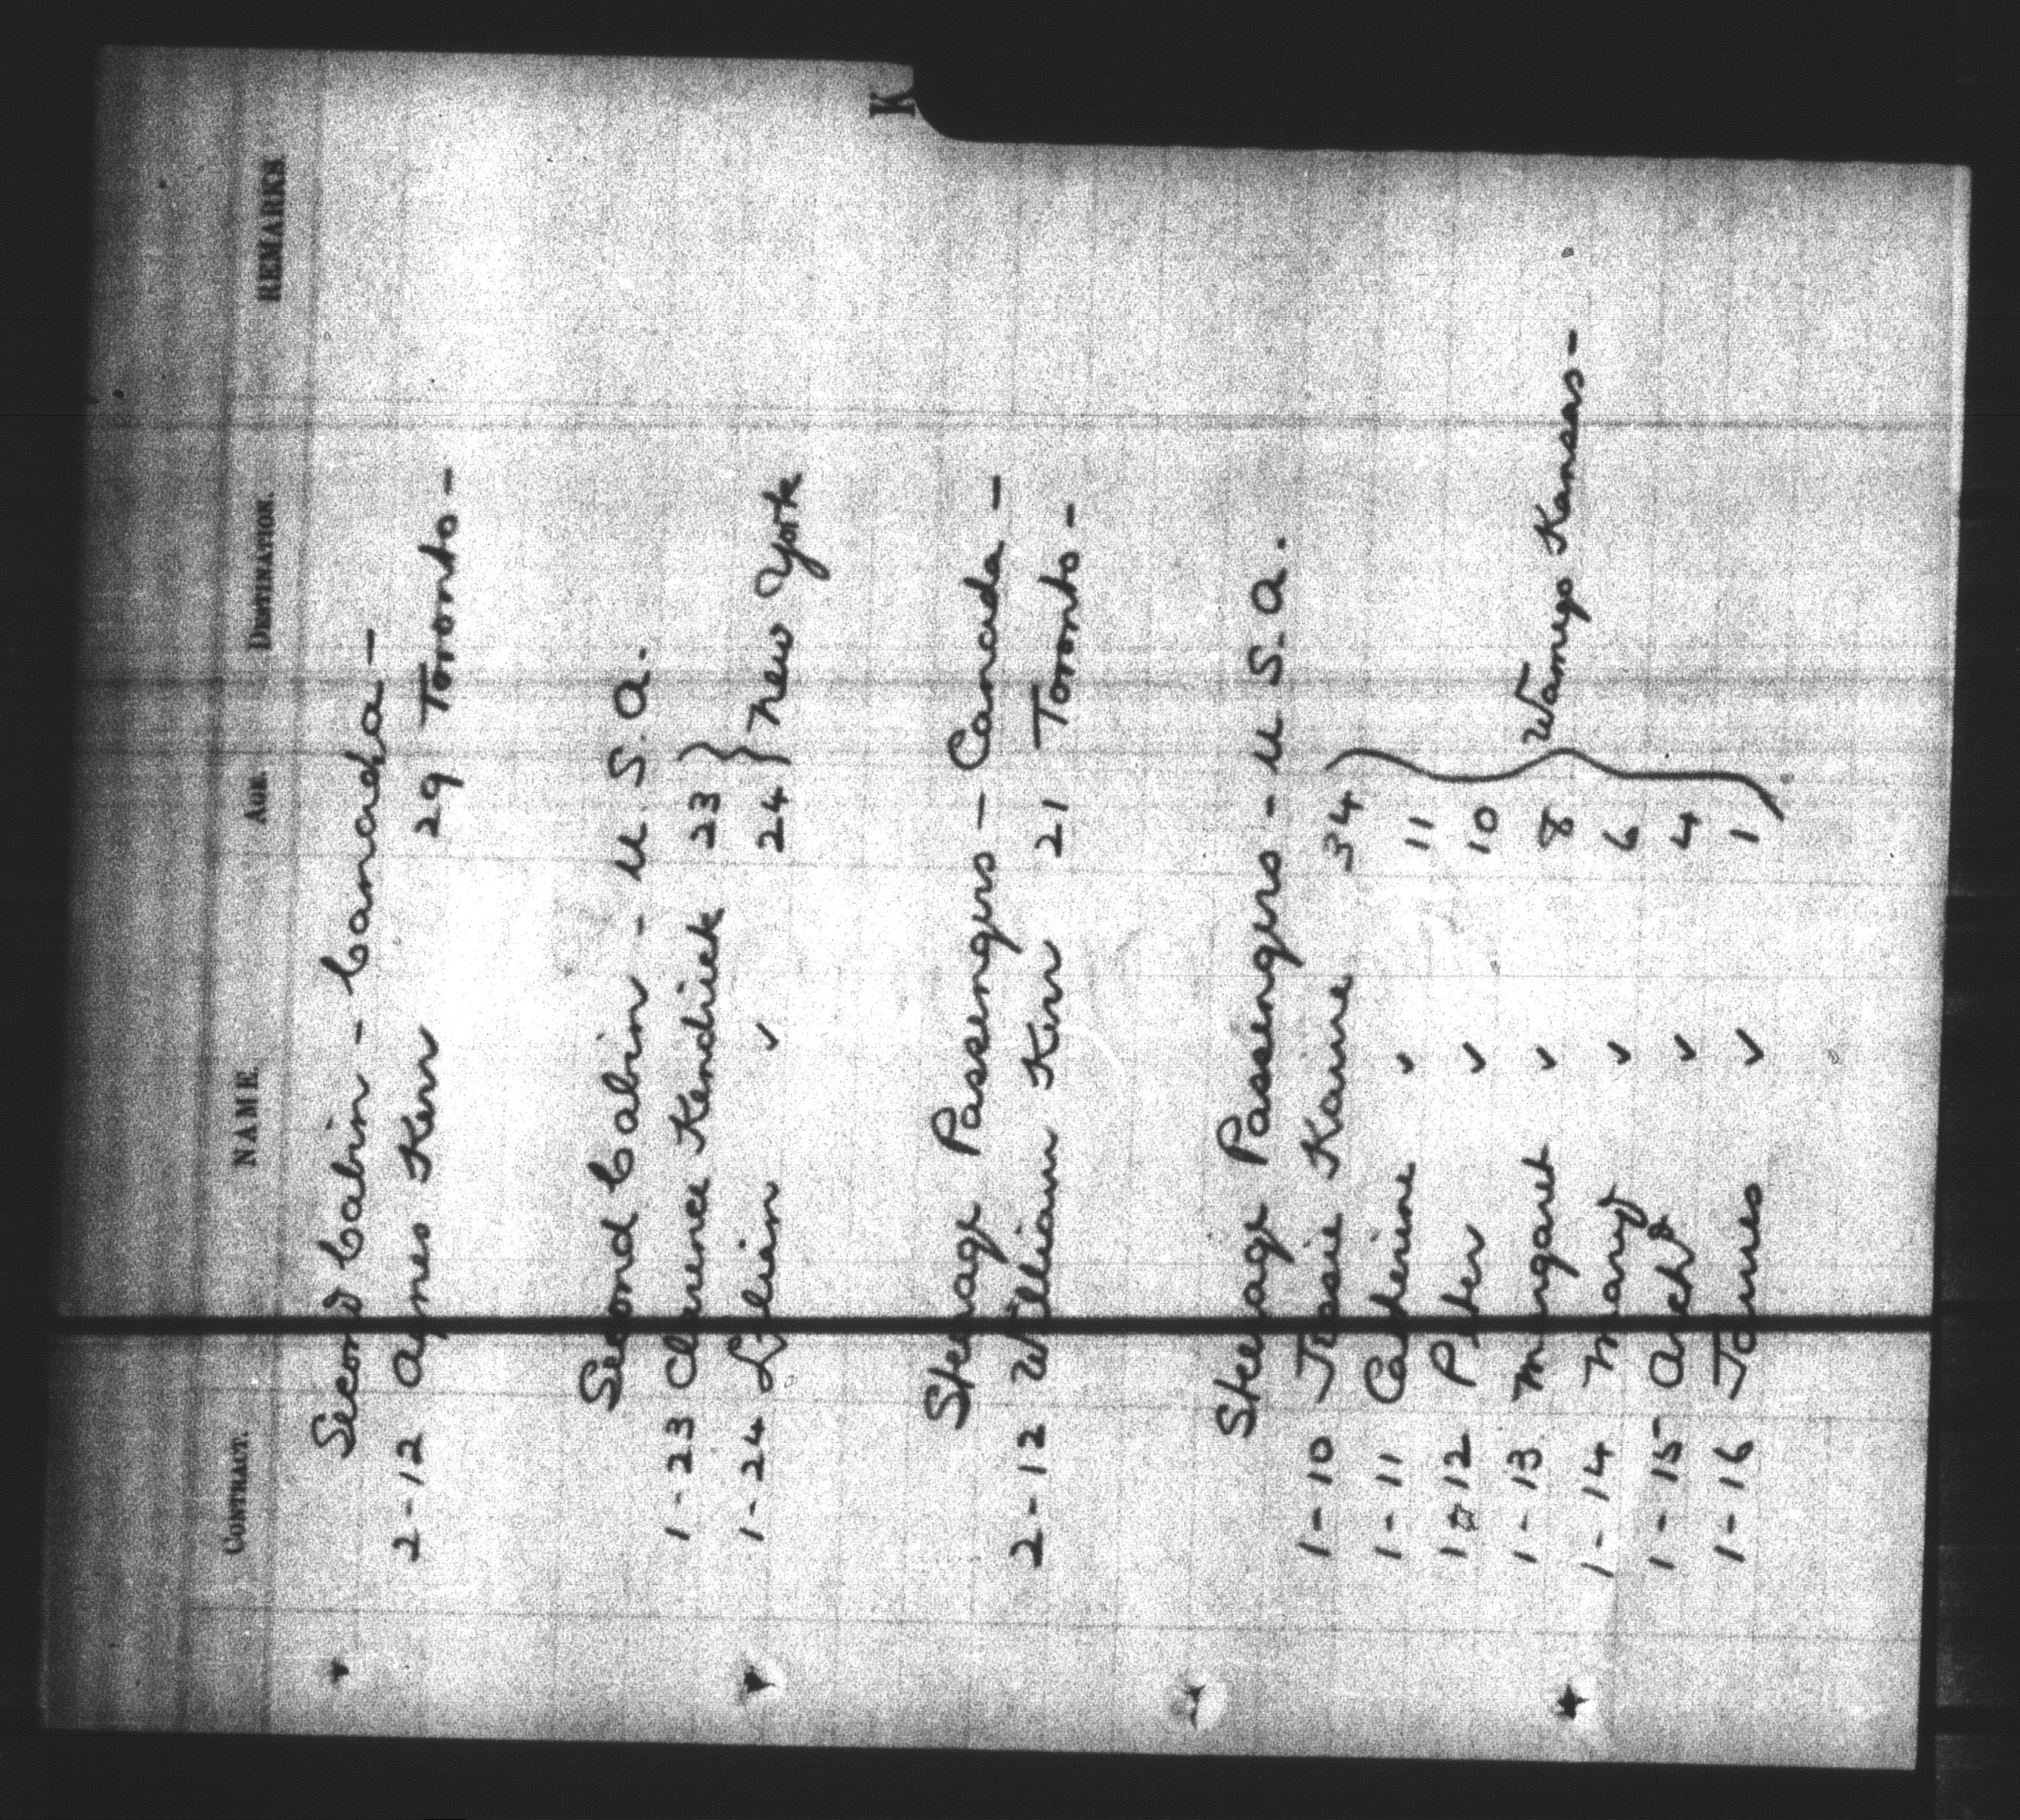 K
CONTRACT. NAME. AGE. DESTINATION. REMARKS.
Second Cabin - Canada -
2-12 Agnes Kerr 29 Toronto -
Second Cabin - U.S.A.
1-23 Clarence Kendrick 23 } New York
1-24 Lilian ✓ 24
Steerage Passengers - Canada -
2-12 William Kerr 21 Toronto -
Steerage Passengers - U.S.A.
1-10 Jessie 34
1-11 Catherine ✓ 11
1-12 Peter ✓ 10
1-13 Margaret ✓ 8 } Wamego Kansas -
1-14 Mary ✓ 6
1-15 Archd ✓ 4
1-16 James ✓ 1